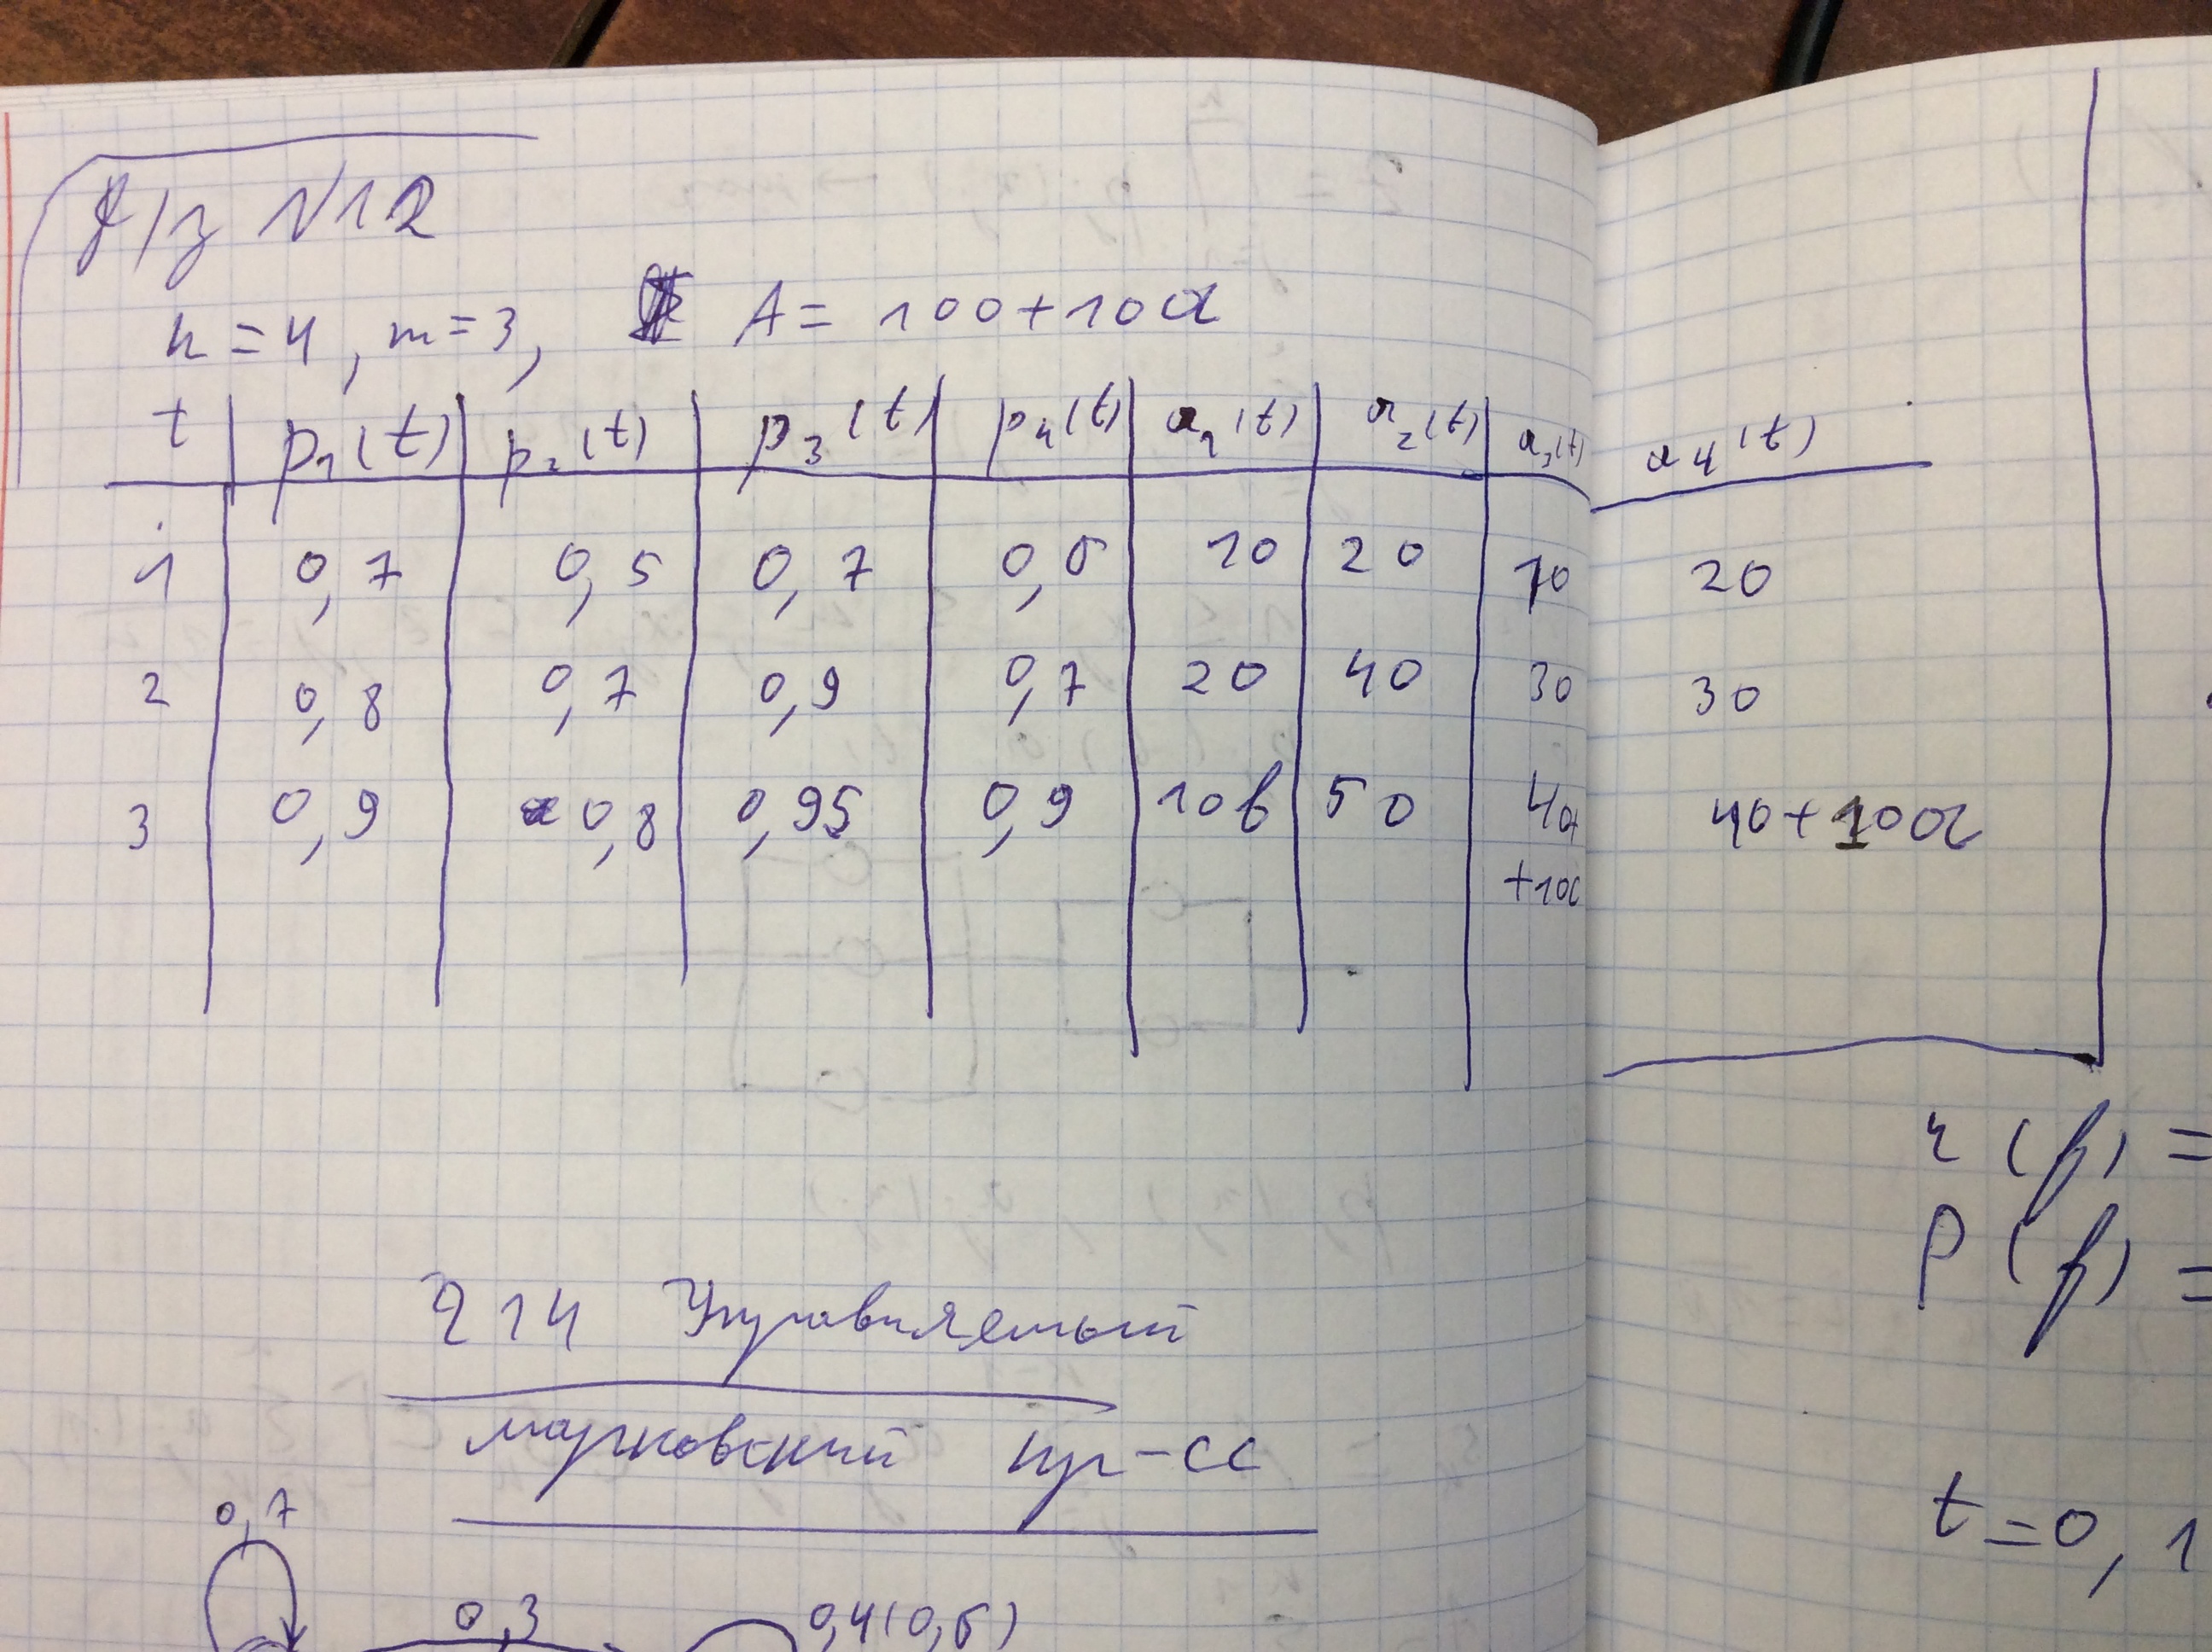 Д/з №12
n=4, m=3, A= 100+10a
t p₁(t) p₂(t) p₃(t) p₄(t) a₁(t) a₂(t) a₃(t) a₄(t)
1 0,7 0,5 0,7 0,6 10 20 10 20
2 0,8 0,7 0,9 0,7 20 40 30 30
3 0,9 0,8 0,95 0,9 10b 50 40+ 40+10a
+10c
§14 Управляемый
марковский пр-сс
0,7
0,3 0,4(0,6)
r(f)=
P(f)=
t=0,1